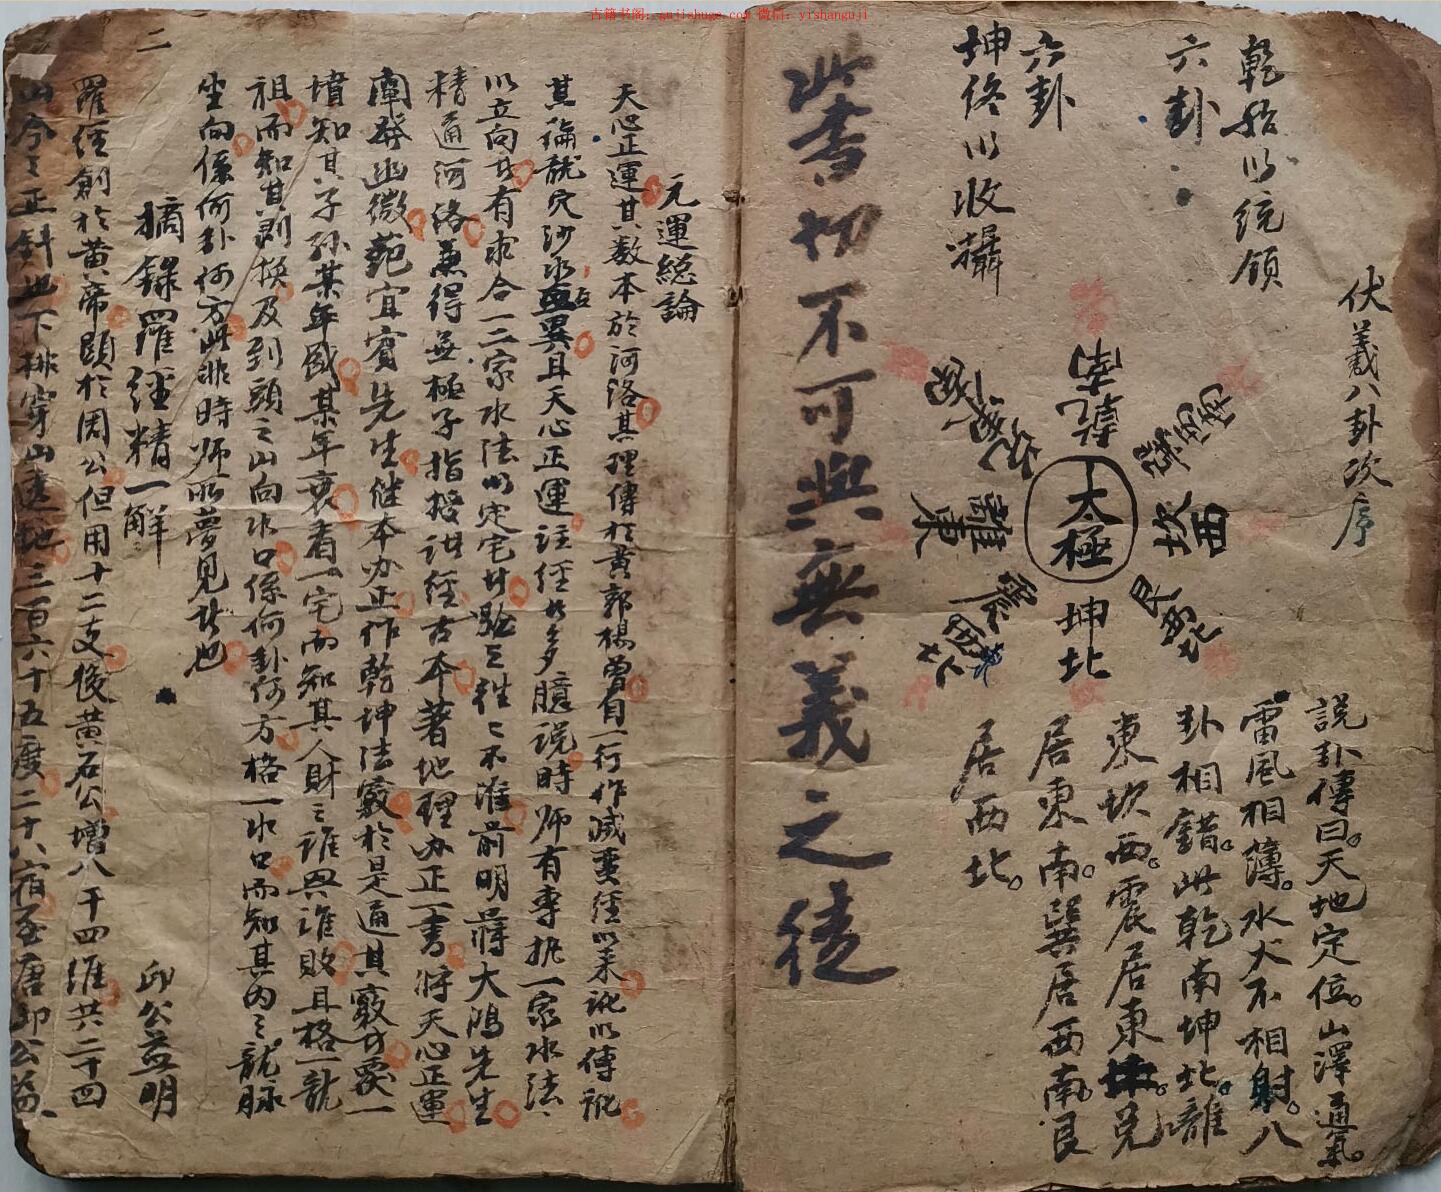 古籍书阁：gujishuge.com 微信：yishanguji
伏羲八卦次序
乾始以統領
六卦
六卦
坤終以收攝
乾南
兌東南
離東
震
坤北
艮西北
坎西
巽西南
太極
說卦傳曰。天地定位。山澤通氣。
雷風相薄。水火不相射。八
卦相錯。此乾南坤北。離
東坎西。震居東北。兌
居東南。巽居西南。艮
居西北。
此書切不可與無義之徒
元運総論
天心正運其数本於河洛其理傳於黃郭楊曾自一行作滅蛮経以來訛以傳訛
其論龍穴沙水互異且天心正運註経者多臆說時师有專执一家水法
以立向者有求合一二家水法以定宅者驗之往々不准前明蔣大鴻先生
精通河洛兼得無極子指授註経古本著地理办正一書將天心正運
闡發幽微范宜賓先生继本办正作乾坤法竅於是通其竅者葬一
墳知其子孫某年盛某年衰看一宅而知其人財之誰興誰敗且格一龍
祖而知其剥换及到頭之山向水口係何卦何方格一水口而知其内之龍脉
坐向係何卦何方此非時师所夢見者也
摘錄羅經精一解 邱公益明
羅経創於黃帝顕於周公但用十二支後黃石公增八干四維共二十四
山今之正針也下排穿山透地三百六十五度二十八宿至唐邱公益
二